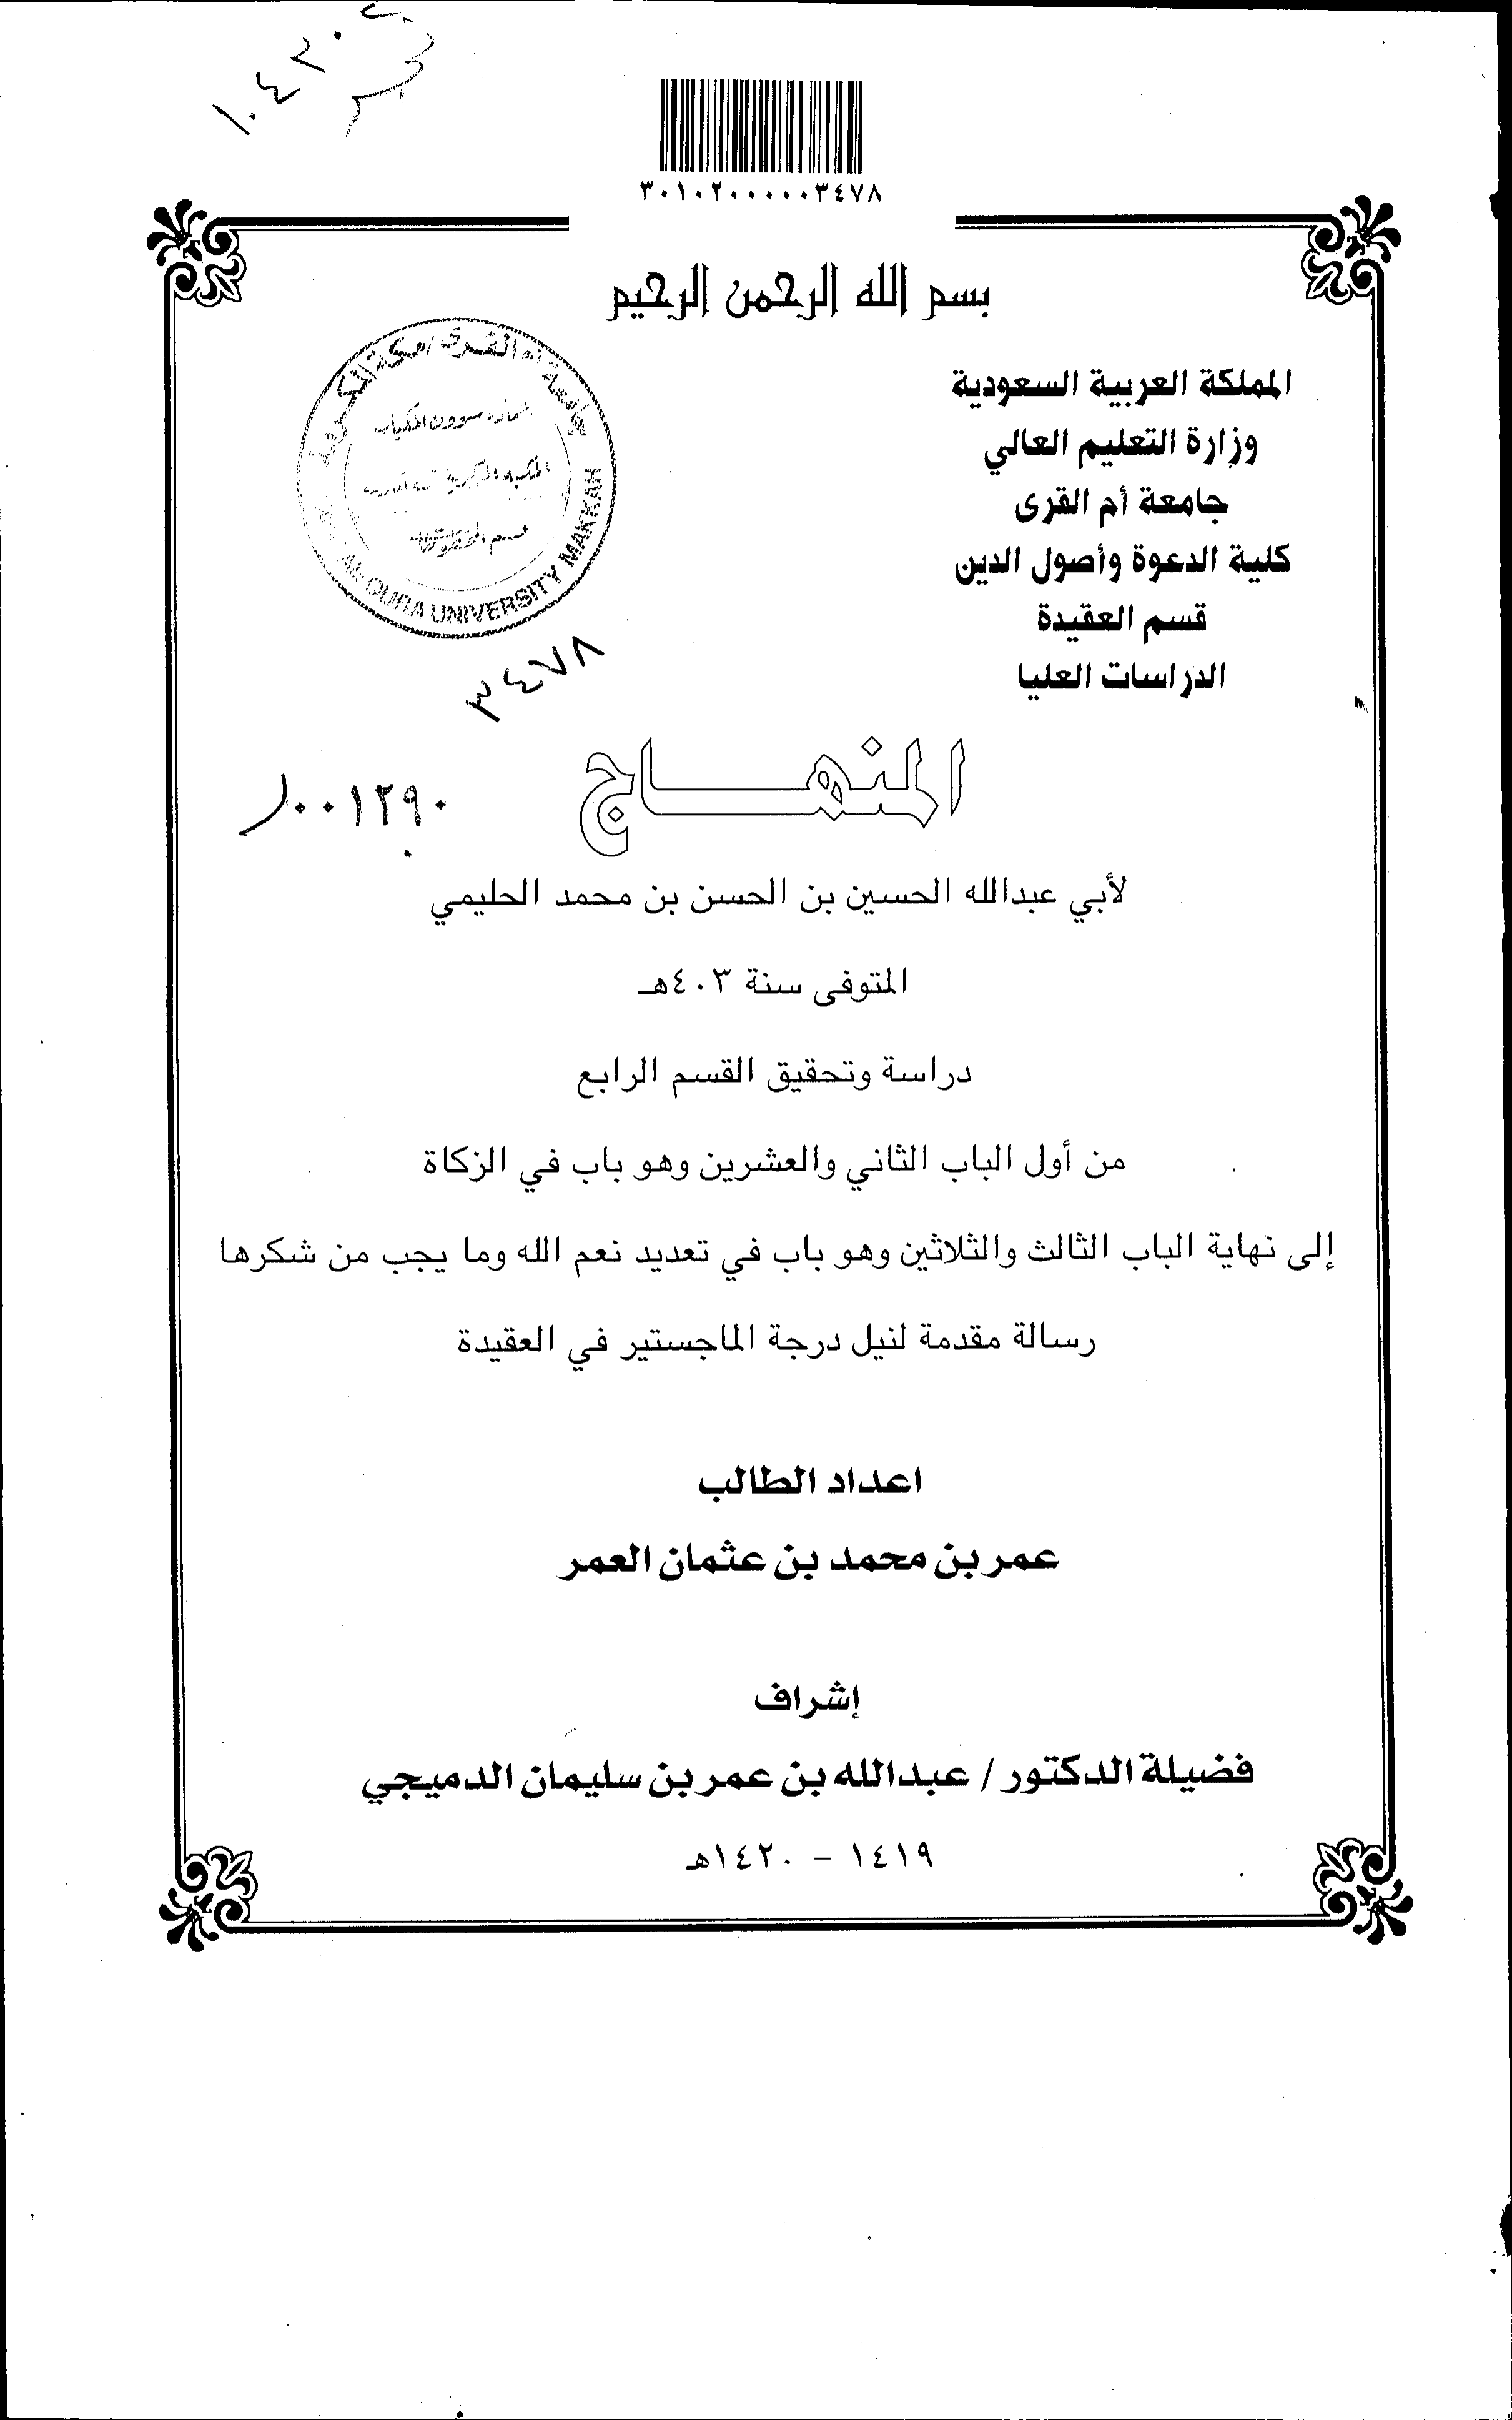 ٣٠١٠٢٠٠٠٠٠٣٤٧٨
بسم الله الرحمن الرحيم
المملكة العربية السعودية
وزارة التعليم العالي
جامعة أم القرى
كلية الدعوة وأصول الدين
قسم العقيدة
الدراسات العليا
جامعة أم القرى / مكة المكرمة
AL-QURA UNIVERSITY MAKKAH
٣٤٧٨
المنهــاج
٠٠١٢٩٠
لأبي عبدالله الحسين بن الحسن بن محمد الحليمي
المتوفى سنة ٤٠٣هـ
دراسة وتحقيق القسم الرابع
من أول الباب الثاني والعشرين وهو باب في الزكاة
إلى نهاية الباب الثالث والثلاثين وهو باب في تعديد نعم الله وما يجب من شكرها
رسالة مقدمة لنيل درجة الماجستير في العقيدة
اعداد الطالب
عمر بن محمد بن عثمان العمر
إشراف
فضيلة الدكتور / عبدالله بن عمر بن سليمان الدميجي
١٤١٩ - ١٤٢٠هـ